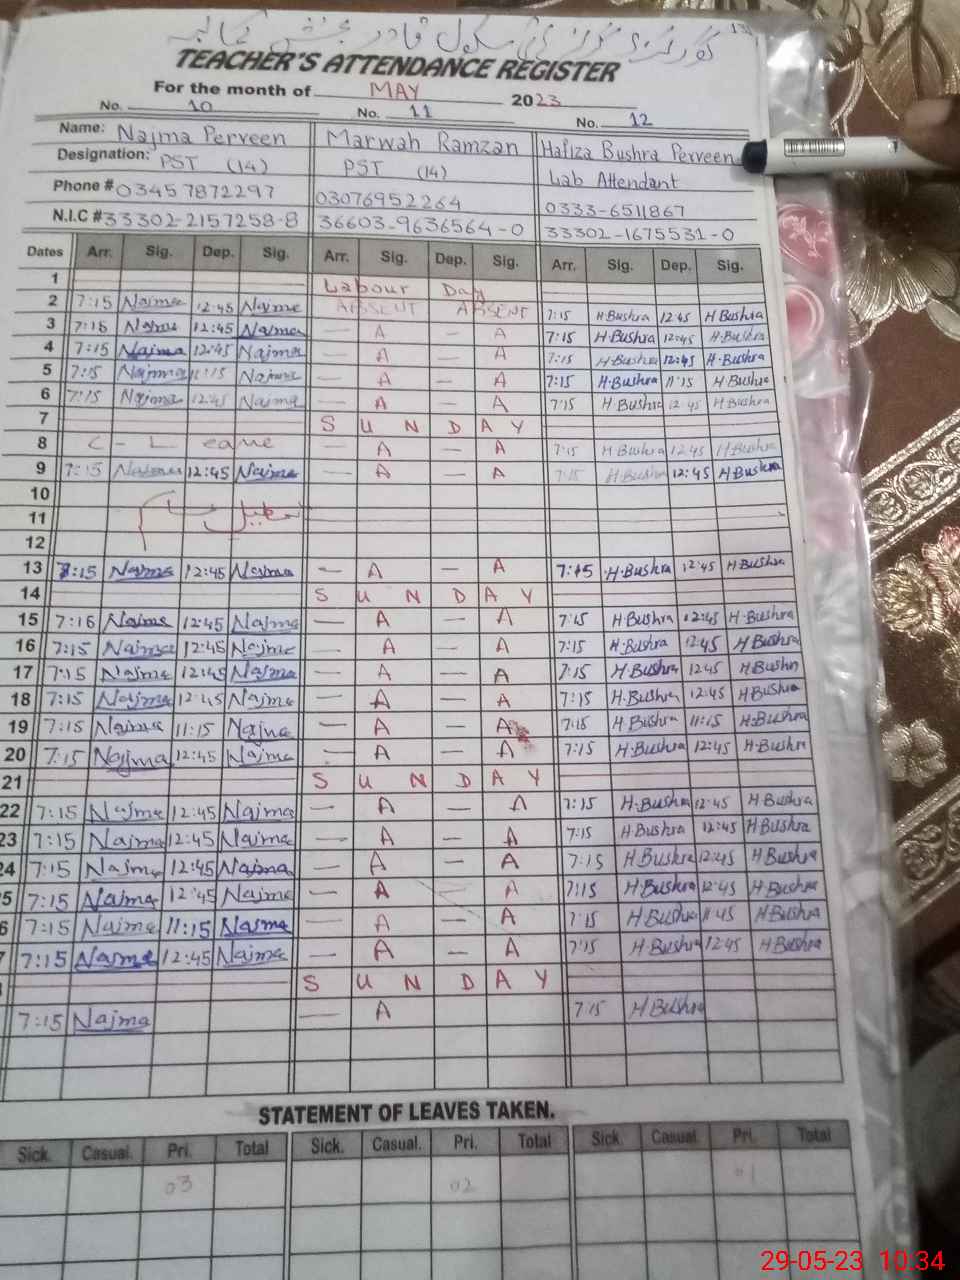 13
گورنمنٹ گرلز ہائی سکول قادر بخش
TEACHER'S ATTENDANCE REGISTER
For the month of MAY 2023
No. 10 No. 11 No. 12
Name: Najma Perveen Marwah Ramzan Hafiza Bushra Perveen
Designation: PST (14) PST (14) Lab Attendant
Phone # 03457872297 03076952264 0333-6511867
N.I.C # 33302-2157258-8 36603-9636564-0 33302-1675531-0
Dates Arr. Sig. Dep. Sig. Arr. Sig. Dep. Sig. Arr. Sig. Dep. Sig.
1 Labour Day
2 7:15 Najma 12:45 Najma ABSENT ABSENT 7:15 H Bushra 12 45 H Bushra
3 7:15 Najma 12:45 Najma — A — A 7:15 H·Bushra 12:45 H·Bushra
4 7:15 Najma 12:45 Najma — A — A 7:15 H·Bushra 12:45 H·Bushra
5 7:15 Najma 11:15 Najma — A — A 7:15 H·Bushra 11'15 H·Bushra
6 7:15 Najma 12:45 Najma — A — A 7:15 H·Bushra 12:45 H·Bushra
7 S U N D A Y
8 C - L eave — A — A 7:15 H Bushra 12:45 H·Bushra
9 7:15 Najma 12:45 Najma — A — A 7:15 H·Bushra 12:45 H·Bushra
10
11 تعطیل
12
13 7:15 Najma 12:45 Najma — A — A 7:15 H·Bushra 12:45 H·Bushra
14 S U N D A Y
15 7:16 Najma 12:45 Najma — A — A 7:15 H·Bushra 12:45 H·Bushra
16 7:15 Najma 12:45 Najma — A — A 7:15 H·Bushra 12:45 H·Bushra
17 7:15 Najma 12:45 Najma — A — A 7:15 H·Bushra 12 45 H·Bushra
18 7:15 Najma 12:45 Najma — A — A 7:15 H·Bushra 12:45 H·Bushra
19 7:15 Najma 11:15 Najma — A — A 7:15 H·Bushra 11:15 H·Bushra
20 7:15 Najma 12:45 Najma — A — A 7:15 H·Bushra 12:45 H·Bushra
21 S U N D A Y
22 7:15 Najma 12:45 Najma — A — A 7:15 H·Bushra 12:45 H·Bushra
23 7:15 Najma 12:45 Najma — A — A 7:15 H·Bushra 12:45 H·Bushra
24 7:15 Najma 12:45 Najma — A — A 7:15 H·Bushra 12:45 H·Bushra
5 7:15 Najma 12:45 Najma — A A 7:15 H·Bushra 12:45 H·Bushra
6 7:15 Najma 11:15 Najma — A — A 7:15 H·Bushra 11:45 H·Bushra
7 7:15 Najma 12:45 Najma — A — A 7:15 H·Bushra 12:45 H·Bushra
S U N D A Y
7:15 Najma — A 7:15 H Bushra
STATEMENT OF LEAVES TAKEN.
Sick. Casual. Pri. Total Sick. Casual. Pri. Total Sick. Casual. Pri. Total
03 02 01
29-05-23 10:34